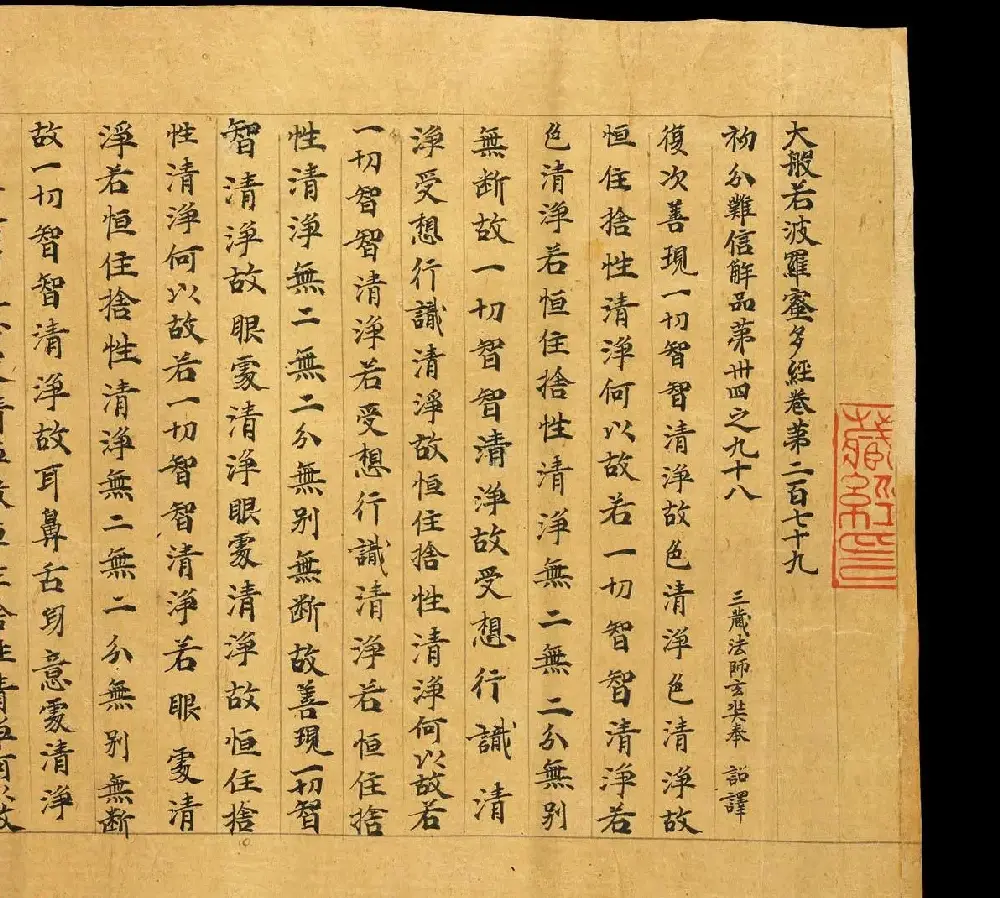 大般若波羅蜜多經卷第二百七十九
初分難信解品第卅四之九十八 三藏法師玄奘奉 詔譯
復次善現一切智智清淨故色清淨色清淨故
恒住捨性清淨何以故若一切智智清淨若
色清淨若恒住捨性清淨無二無二分無別
無断故一切智智清淨故受想行識清
淨受想行識清淨故恒住捨性清淨何以故若
一切智智清淨若受想行識清淨若恒住捨
性清淨無二無二分無别無断故善現一切智
智清淨故眼處清淨眼處清淨故恒住捨
性清淨何以故若一切智智清淨若眼處清
淨若恒住捨性清淨無二無二分無别無断
故一切智智清淨故耳鼻舌身意處清淨
藏經印